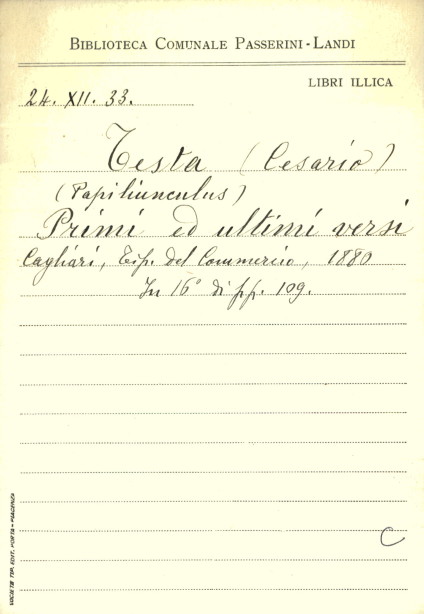 BIBLIOTECA COMUNALE PASSERINI-LANDI
LIBRI ILLICA
24. XII. 33.
Testa (Cesario)
(Papiliunculus)
Primi ed ultimi versi
Cagliari, Tip. del Commercio, 1880
In 16° di pp. 109.
C
SOCIETÀ TIP. EDIT. PORTA - PIACENZA